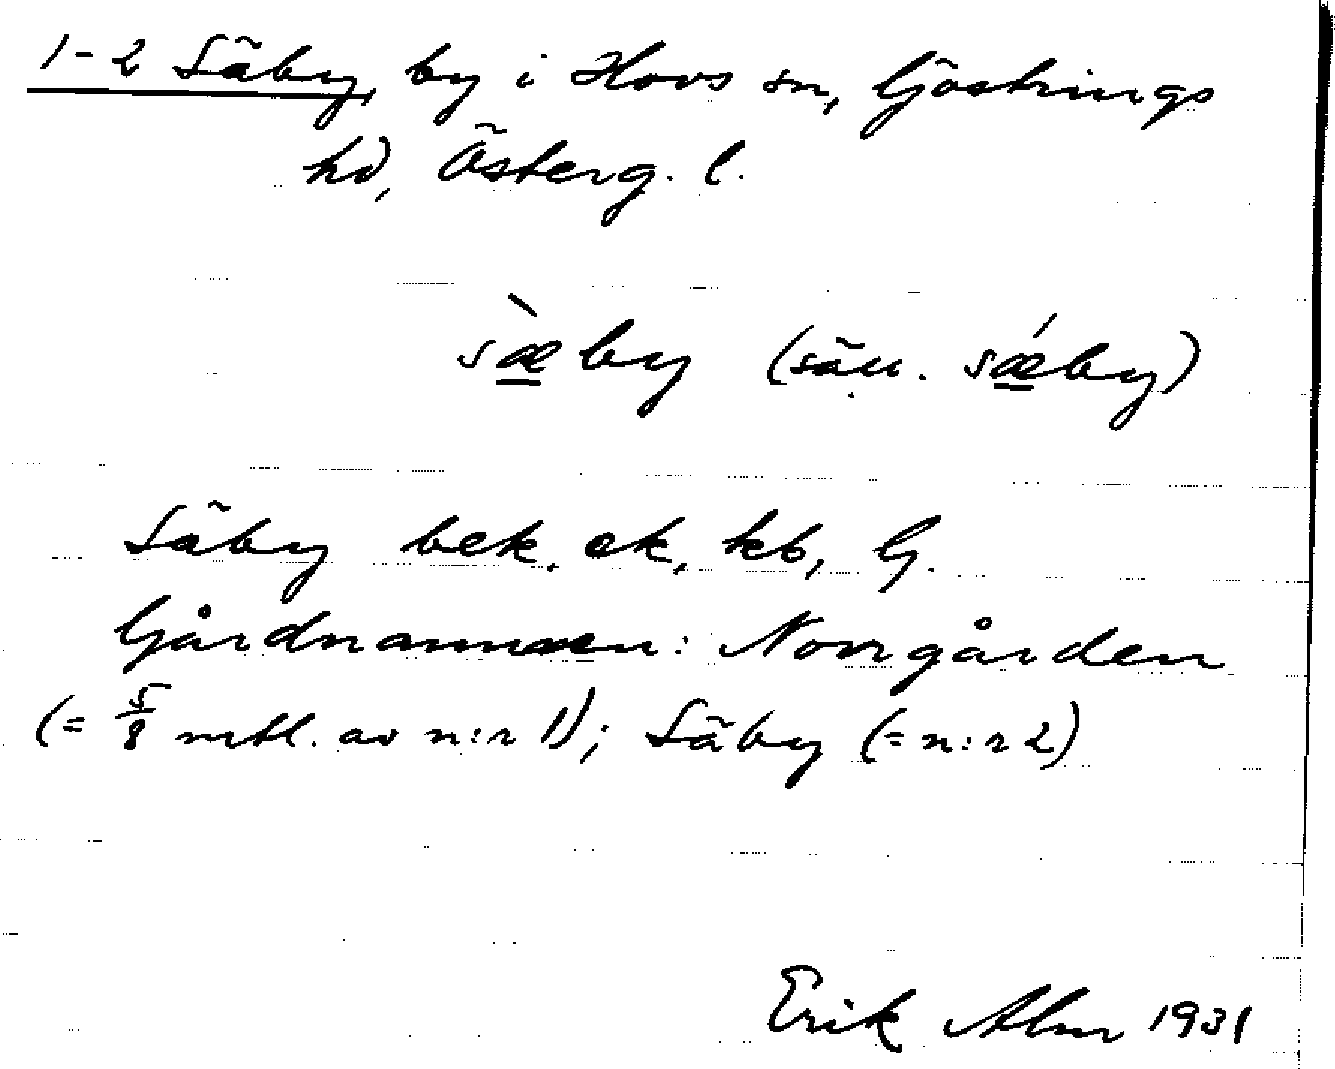 1-2 Säby, by i Hovs sn, Göstrings
hd, Österg. l.
sæ̀by (sän. sǽby)
Säby bek. ek, kb, G.
Gårdnamnen: Norrgården
(= 5/8 mtl. av n:r 1); Säby (= n:r 2)
Erik Alm 1931